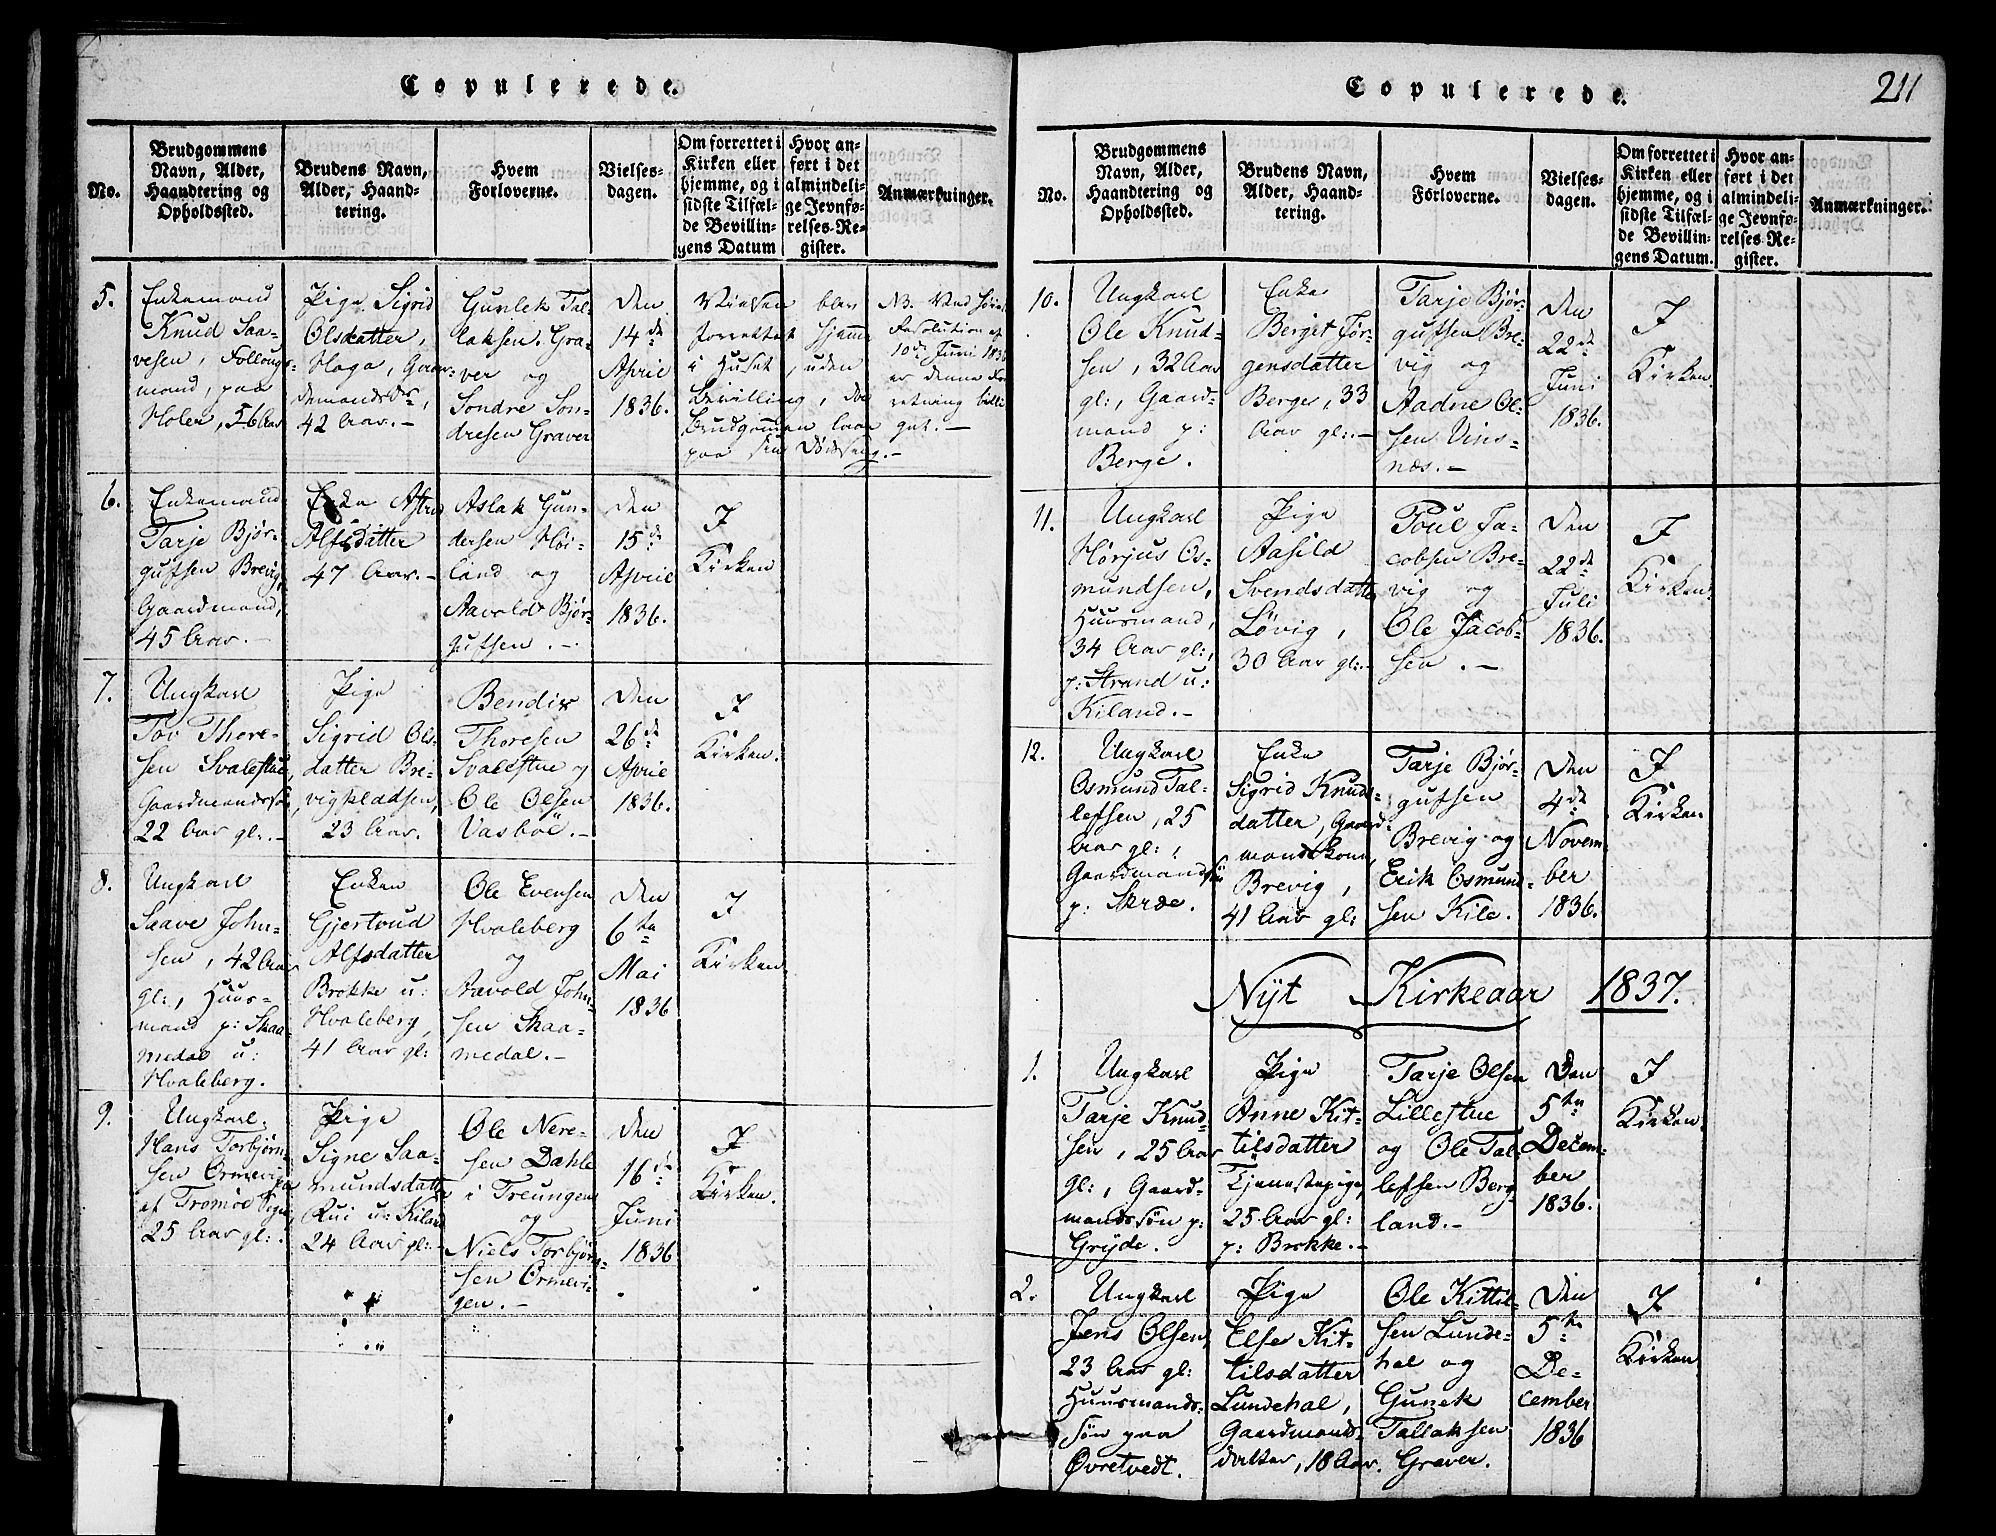 Copulerede.
No.
Brudgommens
Navn, Alder,
Haandtering og
Opholdssted.
Brudens Navn,
Alder, Haand-
tering.
Hvem
Forloverne.
Vielses-
dagen.
Om forrettet i
Kirken eller
hjemme, og i
sidste Tilfæl-
de Bevillin-
gens Datum
Hvor an-
ført i det
almindeli-
ge Jevnfø-
relses-Re-
gister.
Anmærkninger.
5.
Enkemand
Knud Saa-
vesen, Follougs-
mand, paa
Holen, 56 Aar
Pige Sigrid
Olsdatter,
Haga, Gaar-
demandsdr,
42 Aar.-
Gunlek Tal-
laksen Gra-
ver og
Sondre Son-
dresen Graver
Den
14de
April
1836.
Vielsen blev
forrettet hjemme
i Huset, uden
Bevilling, da
Brudgommen laae
paa sin Dødsseng.-
NB. Ved
Resolution af
10de Juni 1836
er denne For
retning billi
get.-
6.
Enkemand
Tarje Bjør-
gufsen Brevig,
Gaardmand,
45 Aar.-
Enke
Alfsdatter
47 Aar.-
Aslak Gun-
dersen Høi-
land og
Aavoldt Bjør-
gufsen.-
Den
15de
April
1836.
I
Kirken
7.
Ungkarl
Tov Thore-
sen Svalestue,
Gaardmandssøn
22 Aar gl:.-
Pige
Sigrid Ols-
datter Bre-
vigpladsen,
23 Aar.
Bendix
Thoresen
Svalestue og
Ole Olsen
Vasboe.-
Den
26de
April
1836.
I
Kirken.
8.
Ungkarl
Saave John-
sen, 42 Aar
gl:, Huus-
mand p: Skaa-
medal u:
Hvaleberg.
Enken
Gjertrud
Alfsdatter
Brokke u:
Hvaleberg,
41 Aar gl:
Ole Evensen
Hvaleberg
og
Aavold John-
sen Skaa-
medal.-
Den
6te
Mai
1836
I
Kirken
9.
Ungkarl
Hans Torbjørn-
sen Ormevigen
af Tromøe Sogn,
25 Aar gl:.
Pige
Signe Saa-
mundsdatter
Rui u: Kiland
24 Aar gl:-
Ole Nere-
sen Dahle
i Treungen
og
Niels Torbjørn-
sen Ormevi-
gen.-
Den
16de
Juni
1836.
I
Kirken.
Copulerede.
211
No.
Brudgommens
Navn, Alder,
Haandtering og
Opholdssted.
Brudens Navn,
Alder, Haand-
tering.
Hvem
Forloverne.
Vielses-
dagen.
Om forrettet i
Kirken eller
hjemme, og i
sidste Tilfæl-
de Bevillin-
gens Datum.
Hvor an-
ført i det
almindeli-
ge Jevnfø-
relses Re-
gister.
Anmærkninger.
10.
Ungkarl
Ole Knud-
sen, 32 Aar
gl:, Gaard-
mand p:
Berge.
Enke
Berget Jør-
gensdatter
Berge, 33
Aar gl:.-
Tarje Bjør-
gufsen Bre-
vig og
Aadne Ol-
sen Vins-
næs.-
Den
22de
Juni
1836.
I
Kirken.
11.
Ungkarl
Hørjus Os-
mundsen,
Huusmand,
34 Aar gl:,
p: Strand u:
Kiland.-
Pige
Aasild
Svendsdatter
Løvig,
30 Aar gl:-
Poul Ja-
cobsen Bre-
vig og
Ole Jacob-
sen.-
Den
22de
Juli
1836.
I
Kirken.
12.
Ungkarl
Osmund Tal-
lefsen, 25
Aar gl:,
Gaardmandssøn
p: Skræ.
Enke
Sigrid Knuds-
datter, Gaard-
mandskone
Brevig,
41 Aar gl:
Tarje Bjør-
gufsen
Brevig og
Erik Osmund-
sen Kile.
Den
4de
Novem
ber
1836.
I
Kirken.
Nyt Kirkeaar 1837.
1.
Ungkarl
Tarje Knud-
sen, 25 Aar
gl:, Gaard-
mandssøn p:
Gryde.
Pige
Anne Kit-
tilsdatter
Tjenestepige,
25 Aar gl:
p: Brokke.-
Tarje Olsen
Lillestue
og Ole Tal-
lefsen Berg-
land.-
Den
5te
Decem-
ber
1836.
I
Kirken.
2.
Ungkarl
Jens Olsen,
23 Aar gl:
Huusmands-
søn paa
Øvretvedt.
Pige
Else Kit-
tilsdatter
Lundehal,
Gaardmands-
datter, 18 Aar.
Ole Kittil-
sen Lunde-
hal og
Gunek
Tallaksen
Graver.
Den
5te
De-
cember
1836
I
Kirken